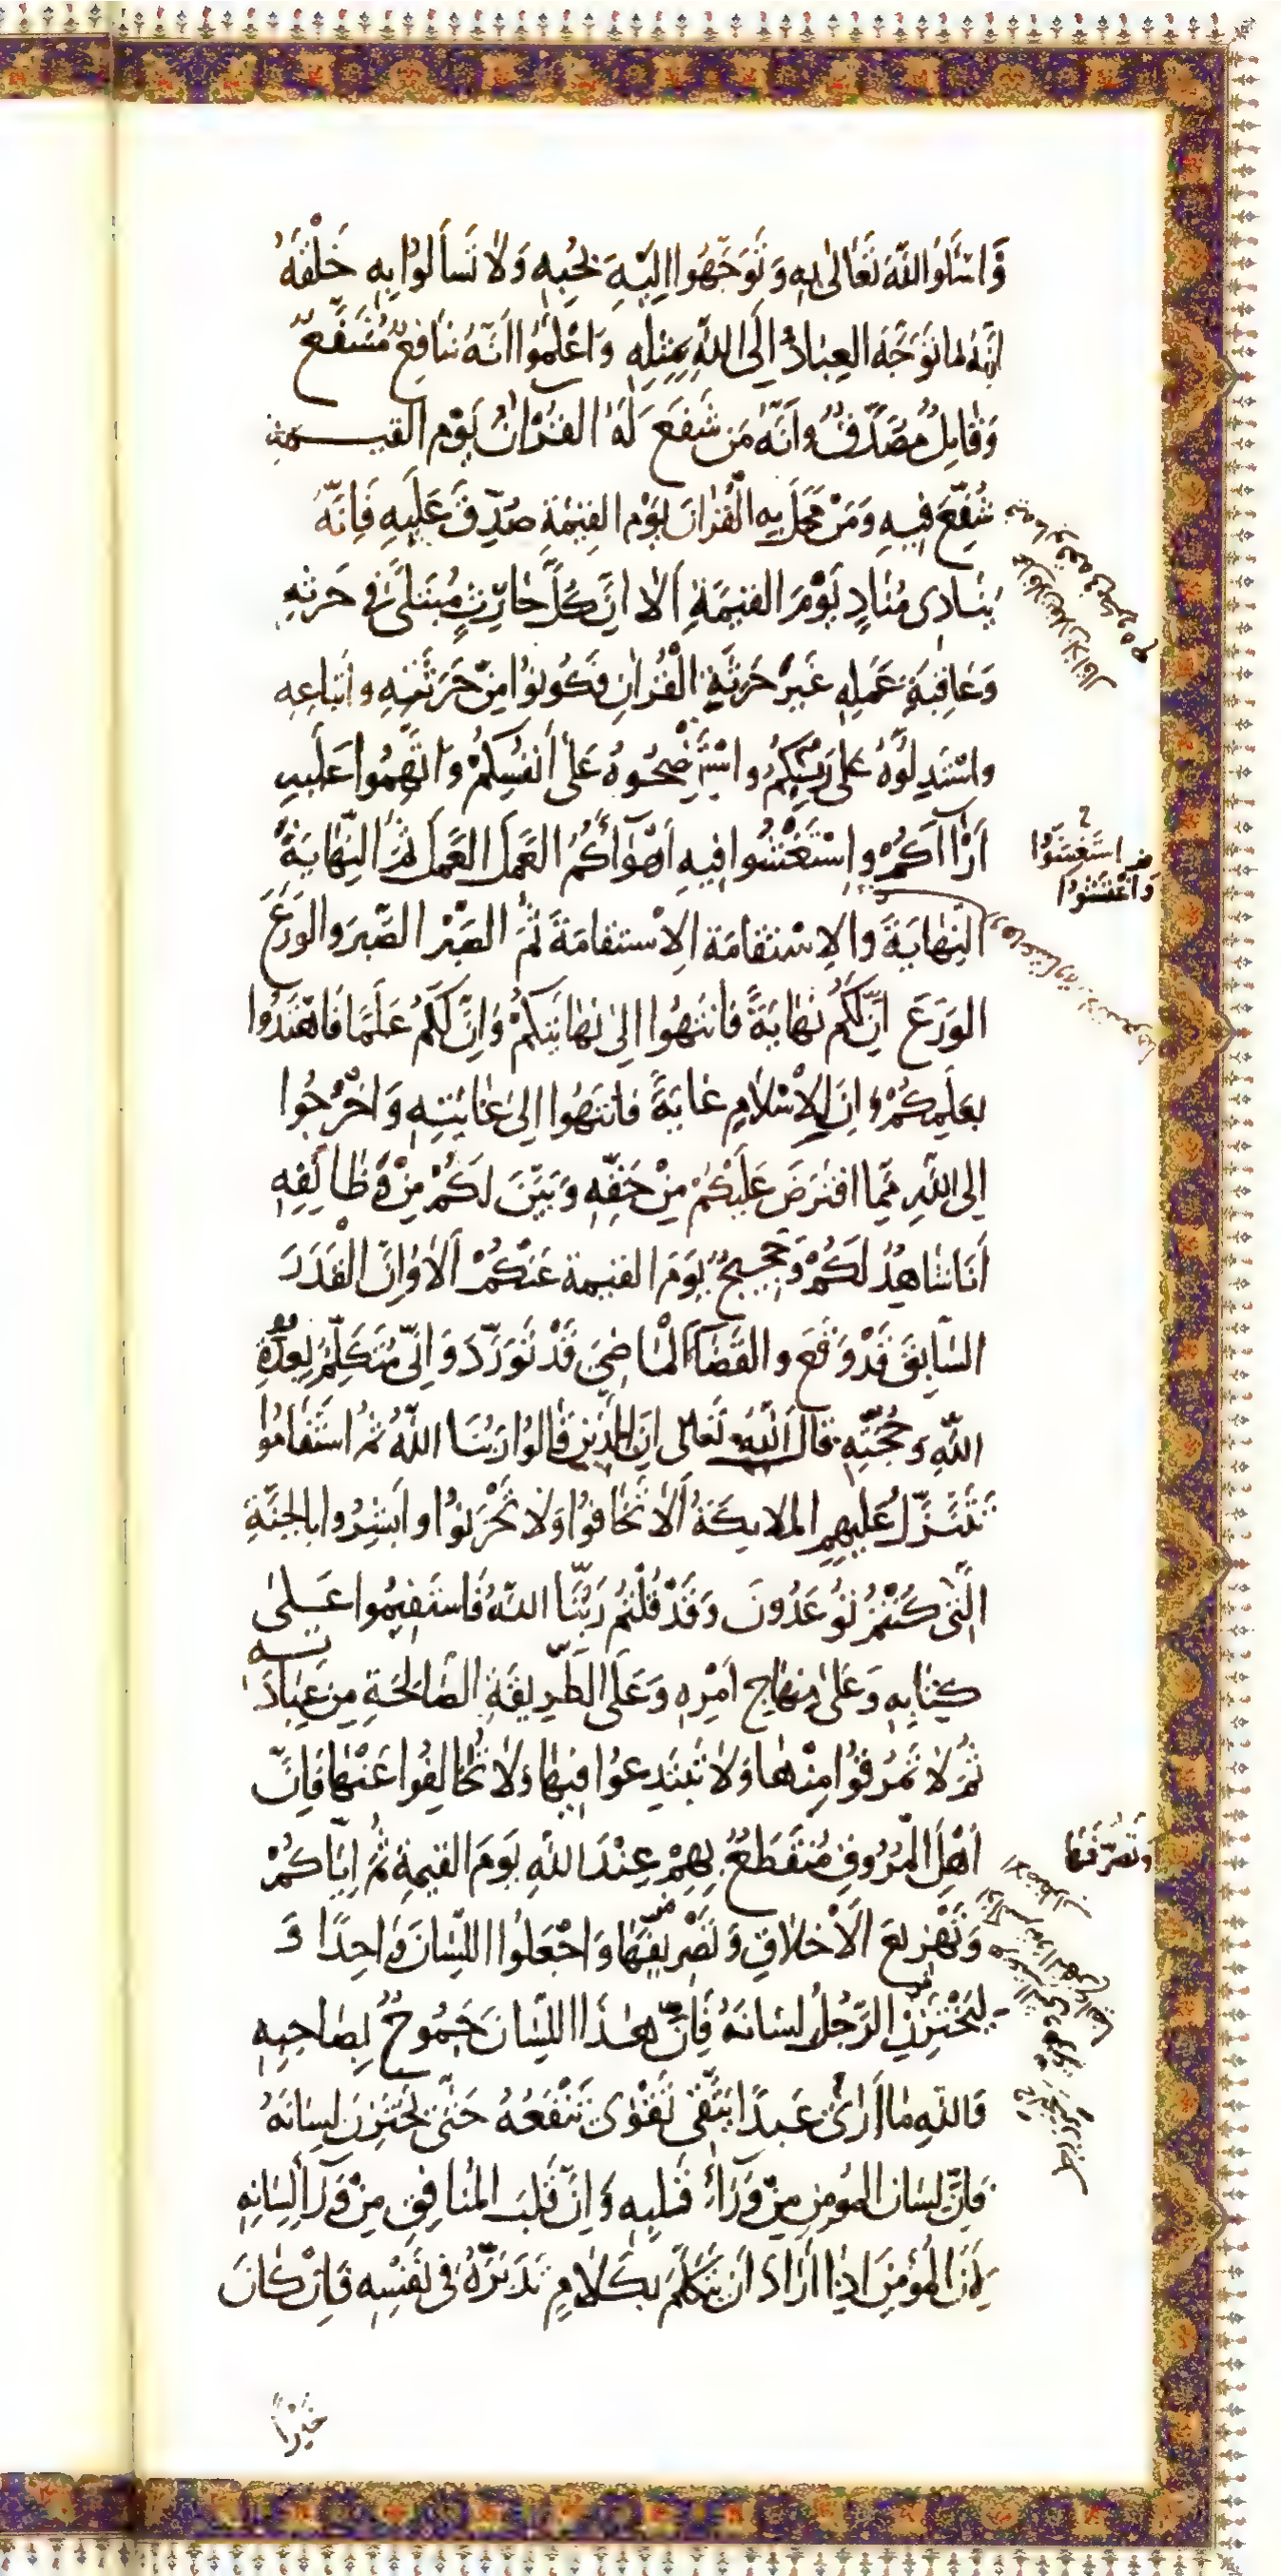 وَاسْأَلُوا اللّهَ تَعَالىٰ بِهِ وَتَوَجَّهُوا اِلَيْهِ بِحُبِّهِ وَلَا تَسْأَلُوا بِهِ خَلْقَهُ
اِنَّهُ مَا تَوَجَّهَ العِبَادُ اِلَى اللّهِ بِمِثْلِهِ وَاعْلَمُوا اَنَّهُ شَافِعٌ مُشَفَّعٌ
وَقَائِلٌ مُصَدَّقٌ وَاَنَّهُ مَنْ شَفَعَ لَهُ القُرْاٰنُ يَوْمَ القيمة
شُفِّعَ فِيهِ وَمَنْ مَحَلَ بِهِ الْقُرْاٰنُ يَوْمَ القِيٰمَةِ صُدِّقَ عَلَيْهِ فَاِنَّهُ
يُنَادِى مُنَادٍ يَوْمَ القِيٰمَةِ اَلَا اِنَّ كُلَّ حَارِثٍ مُبْتَلىً فِى حَرْثِهِ
وَعَاقِبَةِ عَمَلِهِ غَيْرَ حَرَثَةِ الْقُرْاٰنِ فَكُونُوا مِنْ حَرَثَتِهِ واَتْبَاعِهِ
وَاسْتَدِلُّوهُ عَلىٰ رَبِّكُمْ وَاسْتَنْصِحُوهُ عَلىٰ اَنْفُسِكُمْ وَاتَّهِمُوا عَلَيهِ
اٰرَاءَكُمْ وَاسْتَغِشُّوا فِيهِ اَهْوَاءَكُمُ العَمَلَ العَمَلَ ثُمَّ النِّهَايَةَ
النِّهَايَةَ وَالاِسْتِقَامَةَ الاِسْتِقَامَةَ ثُمَّ الصَّبْرَ الصَّبْرَ وَالوَرَعَ
الوَرَعَ اِنَّ لَكُمْ نِهَايَةً فَانْتَهُوا اِلىٰ نِهَايَتِكُمْ وَاِنَّ لَكُمْ عَلَمًا فَاهْتَدُوا
بِعَلَمِكُمْ وَاِنَّ لِلاِسْلَامِ غَايَةً فَانْتَهُوا اِلىٰ غَايَتِهِ وَاخْرُجُوا
اِلَى اللّهِ مِمَّا افْتَرَضَ عَلَيْكُمْ مِنْ حَقِّهِ وَبَيَّنَ لَكُمْ مِنْ وَظَائِفِهِ
اَنَا شَاهِدٌ لَكُمْ وَحَجِيجٌ يَوْمَ القيمة عَنْكُمْ اَلَا وَاِنَّ الْقَدَرَ
السَّابِقَ قَدْ وَقَعَ وَالقَضَاءَ الْمَاضِىَ قَدْ تَوَرَّدَ وَاِنِّى مُتَكَلِّمٌ بِعِدَةِ
اللّهِ وَحُجَّتِهِ قَالَ اللّهُ تَعَالىٰ اِنَّ الَّذِينَ قَالُوا رَبُّنَا اللّهُ ثُمَّ اسْتَقَامُوا
تَتَنَزَّلُ عَلَيْهِمِ المَلَائِكَةُ اَلَّا تَخَافُوا وَلَا تَحْزَنُوا وَاَبْشِرُوا بِالْجَنَّةِ
الَّتِى كُنْتُمْ تُوعَدُونَ وَقَدْ قُلْتُمْ رَبُّنَا اللّهُ فَاسْتَقِيمُوا عَلىٰ
كِتَابِهِ وَعَلىٰ مِنْهَاجِ اَمْرِهِ وَعَلَى الطَّرِيقَةِ الصَّالِحَةِ مِنْ عِبَادَتِهِ
ثُمَّ لَا تَمْرُقُوا مِنْهَا وَلَا تَبْتَدِعُوا فِيهَا وَلَا تُخَالِفُوا عَنْهَا فَاِنَّ
اَهْلَ الْمُرُوقِ مُنْقَطَعٌ بِهِمْ عِنْدَ اللّهِ يَوْمَ القيمة ثُمَّ اِيَّاكُمْ
وَتَهْزِيعَ الْاَخْلَاقِ وَتَصْرِيفَهَا وَاجْعَلُوا اللِّسَانَ وَاحِدًا وَ
لْيَخْتَزِنِ الرَّجُلُ لِسَانَهُ فَاِنَّ هٰذَا اللِّسَانَ جَمُوحٌ بِصَاحِبِهِ
فَاللّهِ مَا اَرىٰ عَبْدًا يَتَّقِى تَقْوىٰ تَنْفَعُهُ حَتّىٰ يَخْتَزِنَ لِسَانَهُ
فَاِنَّ لِسَانَ المُؤْمِنِ مِنْ وَرَاءِ قَلْبِهِ وَاِنَّ قَلْبَ المُنَافِقِ مِنْ وَرَاءِ لِسَانِهِ
لِاَنَّ الْمُؤْمِنَ اِذَا اَرَادَ اَنْ يَتَكَلَّمَ بِكَلَامٍ تَدَبَّرَهُ فِى نَفْسِهِ فَاِنْ كَانَ
خَيْرًا